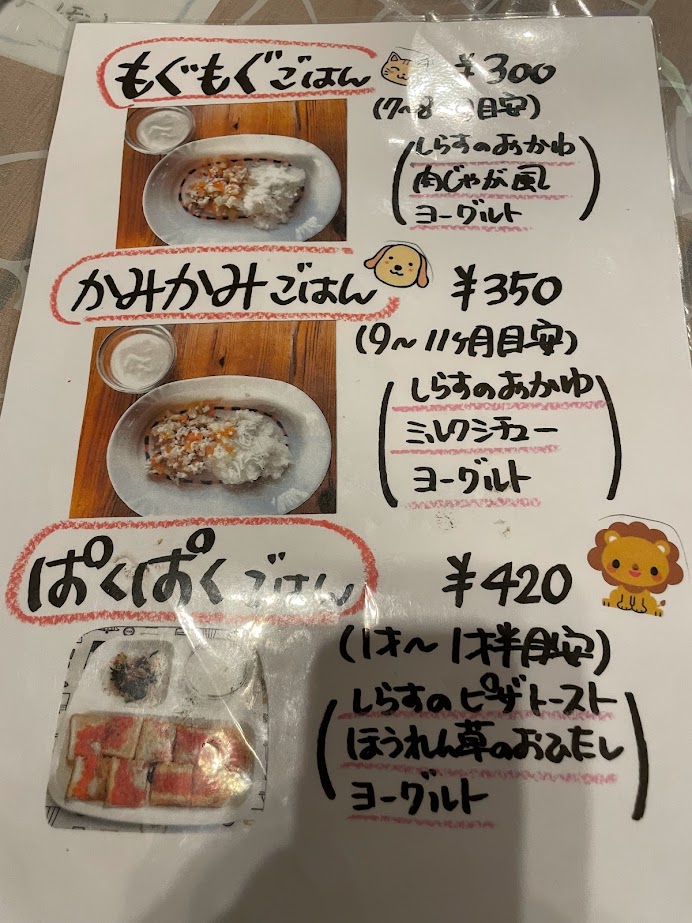 もぐもぐごはん ¥300
(7~8 目安)
しらすのおかゆ
肉じゃが風
ヨーグルト
かみかみごはん ¥350
(9~11ヶ月目安)
しらすのおかゆ
ミルクシチュー
ヨーグルト
ぱくぱくごはん ¥420
(1才~1才半目安)
しらすのピザトースト
ほうれん草のおひたし
ヨーグルト